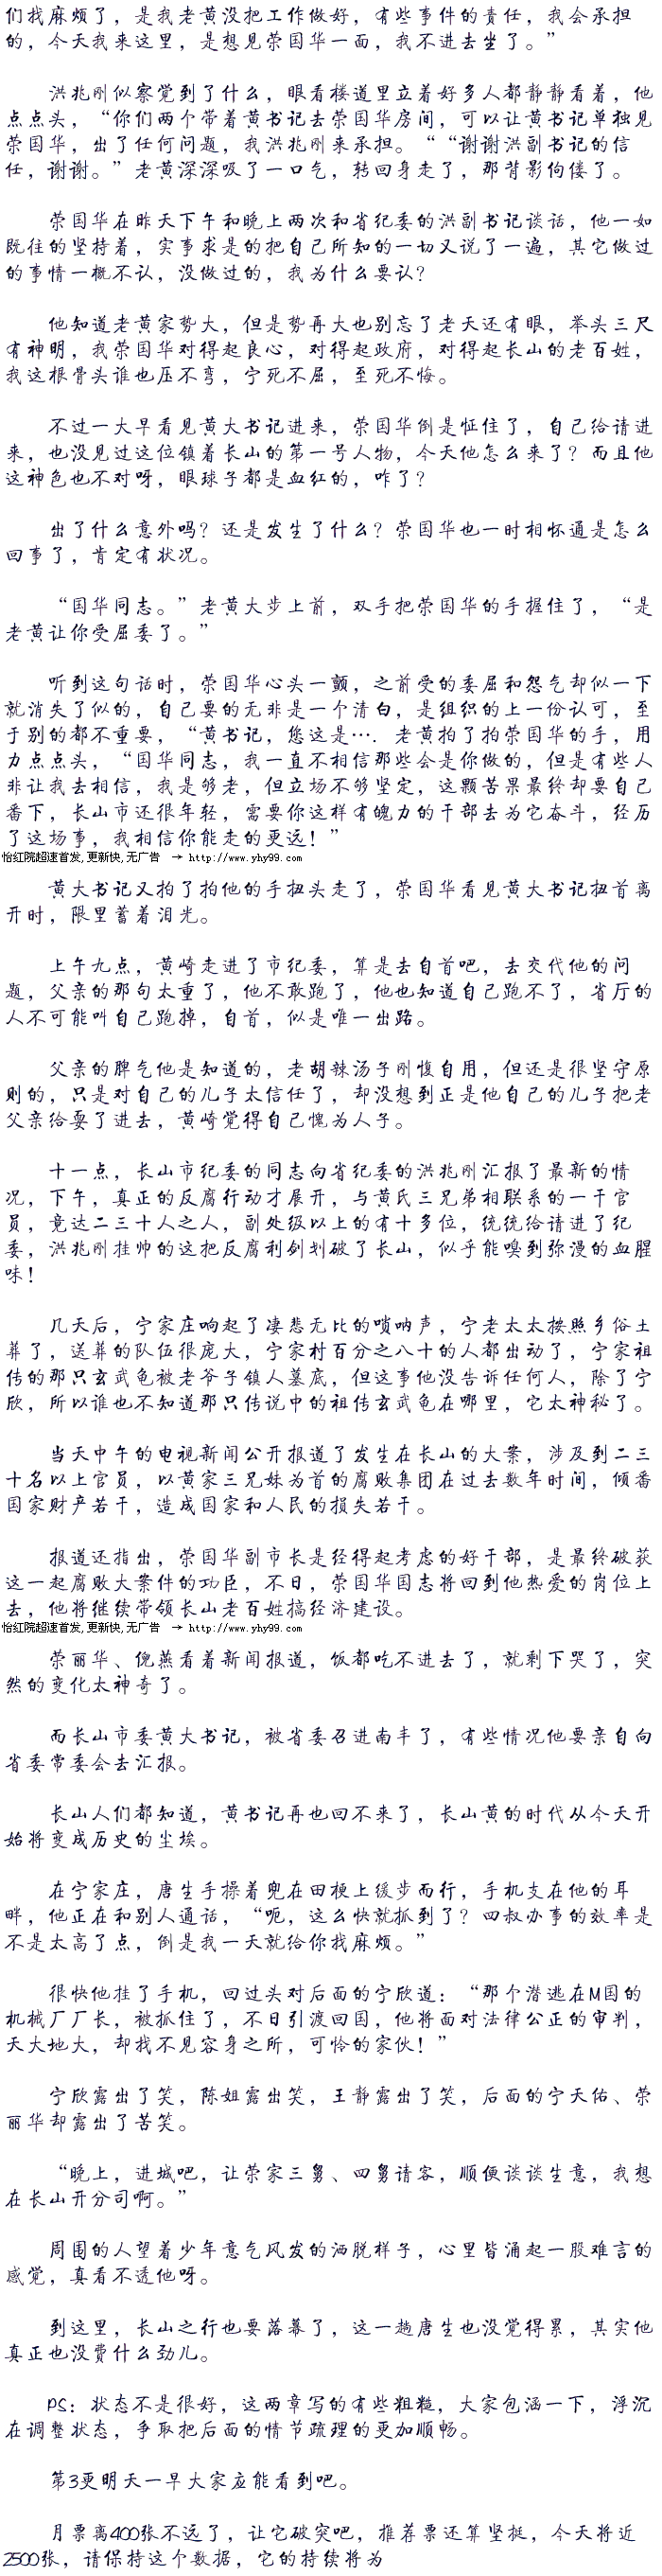 们找麻烦了，是我老黄没把工作做好，有些事件的责任，我会承担
的，今天我来这里，是想见荣国华一面，我不进去坐了。”
洪兆刚似察觉到了什么，眼看楼道里立着好多人都静静看着，他
点点头，“你们两个带着黄书记去荣国华房间，可以让黄书记单独见
荣国华，出了任何问题，我洪兆刚来承担。““谢谢洪副书记的信
任，谢谢。”老黄深深吸了一口气，转回身走了，那背影佝偻了。
荣国华在昨天下午和晚上两次和省纪委的洪副书记谈话，他一如
既往的坚持着，实事求是的把自己所知的一切又说了一遍，其它做过
的事情一概不认，没做过的，我为什么要认？
他知道老黄家势大，但是势再大也别忘了老天还有眼，举头三尺
有神明，我荣国华对得起良心，对得起政府，对得起长山的老百姓，
我这根骨头谁也压不弯，宁死不屈，至死不悔。
不过一大早看见黄大书记进来，荣国华倒是怔住了，自己给请进
来，也没见过这位镇着长山的第一号人物，今天他怎么来了？而且他
这神色也不对呀，眼球子都是血红的，咋了？
出了什么意外吗？还是发生了什么？荣国华也一时相怀通是怎么
回事了，肯定有状况。
“国华同志。”老黄大步上前，双手把荣国华的手握住了，“是
老黄让你受屈委了。”
听到这句话时，荣国华心头一颤，之前受的委屈和怨气却似一下
就消失了似的，自己要的无非是一个清白，是组织的上一份认可，至
于别的都不重要，“黄书记，您这是…．老黄拍了拍荣国华的手，用
力点点头，“国华同志，我一直不相信那些会是你做的，但是有些人
非让我去相信，我是够老，但立场不够坚定，这颗苦果最终却要自己
番下，长山市还很年轻，需要你这样有魄力的干部去为它奋斗，经历
了这场事，我相信你能走的更远！”
怡红院超速首发,更新快,无广告 → http://www.yhy99.com
黄大书记又拍了拍他的手扭头走了，荣国华看见黄大书记扭首离
开时，限里蓄着泪光。
上午九点，黄崎走进了市纪委，算是去自首吧，去交代他的问
题，父亲的那句太重了，他不敢跑了，他也知道自己跑不了，省厅的
人不可能叫自己跑掉，自首，似是唯一出路。
父亲的脾气他是知道的，老胡辣汤子刚愎自用，但还是很坚守原
则的，只是对自己的儿子太信任了，却没想到正是他自己的儿子把老
父亲给耍了进去，黄崎觉得自己愧为人子。
十一点，长山市纪委的同志向省纪委的洪兆刚汇报了最新的情
况，下午，真正的反腐行动才展开，与黄氏三兄弟相联系的一干官
员，竟达二三十人之人，副处级以上的有十多位，统统给请进了纪
委，洪兆刚挂帅的这把反腐利剑划破了长山，似乎能嗅到弥漫的血腥
味！
几天后，宁家庄响起了凄悲无比的唢呐声，宁老太太按照乡俗土
葬了，送葬的队伍很庞大，宁家村百分之八十的人都出动了，宁家祖
传的那只玄武龟被老爷子镇人墓底，但这事他没告诉任何人，除了宁
欣，所以谁也不知道那只传说中的祖传玄武龟在哪里，它太神秘了。
当天中午的电视新闻公开报道了发生在长山的大案，涉及到二三
十名以上官员，以黄家三兄妹为首的腐败集团在过去数年时间，倾番
国家财产若干，造成国家和人民的损失若干。
报道还指出，荣国华副市长是经得起考虑的好干部，是最终破获
这一起腐败大案件的功臣，不日，荣国华国志将回到他热爱的岗位上
去，他将继续带领长山老百姓搞经济建设。
怡红院超速首发,更新快,无广告 → http://www.yhy99.com
荣丽华、倪燕看着新闻报道，饭都吃不进去了，就剩下哭了，突
然的变化太神奇了。
而长山市委黄大书记，被省委召进南丰了，有些情况他要亲自向
省委常委会去汇报。
长山人们都知道，黄书记再也回不来了，长山黄的时代从今天开
始将变成历史的尘埃。
在宁家庄，唐生手操着兜在田梗上缓步而行，手机支在他的耳
畔，他正在和别人通话，“呃，这么快就抓到了？四叔办事的效率是
不是太高了点，倒是我一天就给你找麻烦。”
很快他挂了手机，回过头对后面的宁欣道：“那个潜逃在M国的
机械厂厂长，被抓住了，不日引渡回国，他将面对法律公正的审判，
天大地大，却找不见容身之所，可怜的家伙！”
宁欣露出了笑，陈姐露出笑，王静露出了笑，后面的宁天佑、荣
丽华却露出了苦笑。
“晚上，进城吧，让荣家三舅、四舅请客，顺便谈谈生意，我想
在长山开分司啊。”
周围的人望着少年意气风发的洒脱样子，心里皆涌起一股难言的
感觉，真看不透他呀。
到这里，长山之行也要落幕了，这一趟唐生也没觉得累，其实他
真正也没费什么劲儿。
PS：状态不是很好，这两章写的有些粗糙，大家包涵一下，浮沉
在调整状态，争取把后面的情节疏理的更加顺畅。
第3更明天一早大家应能看到吧。
月票离400张不远了，让它破突吧，推荐票还算坚挺，今天将近
2500张，请保持这个数据，它的持续将为